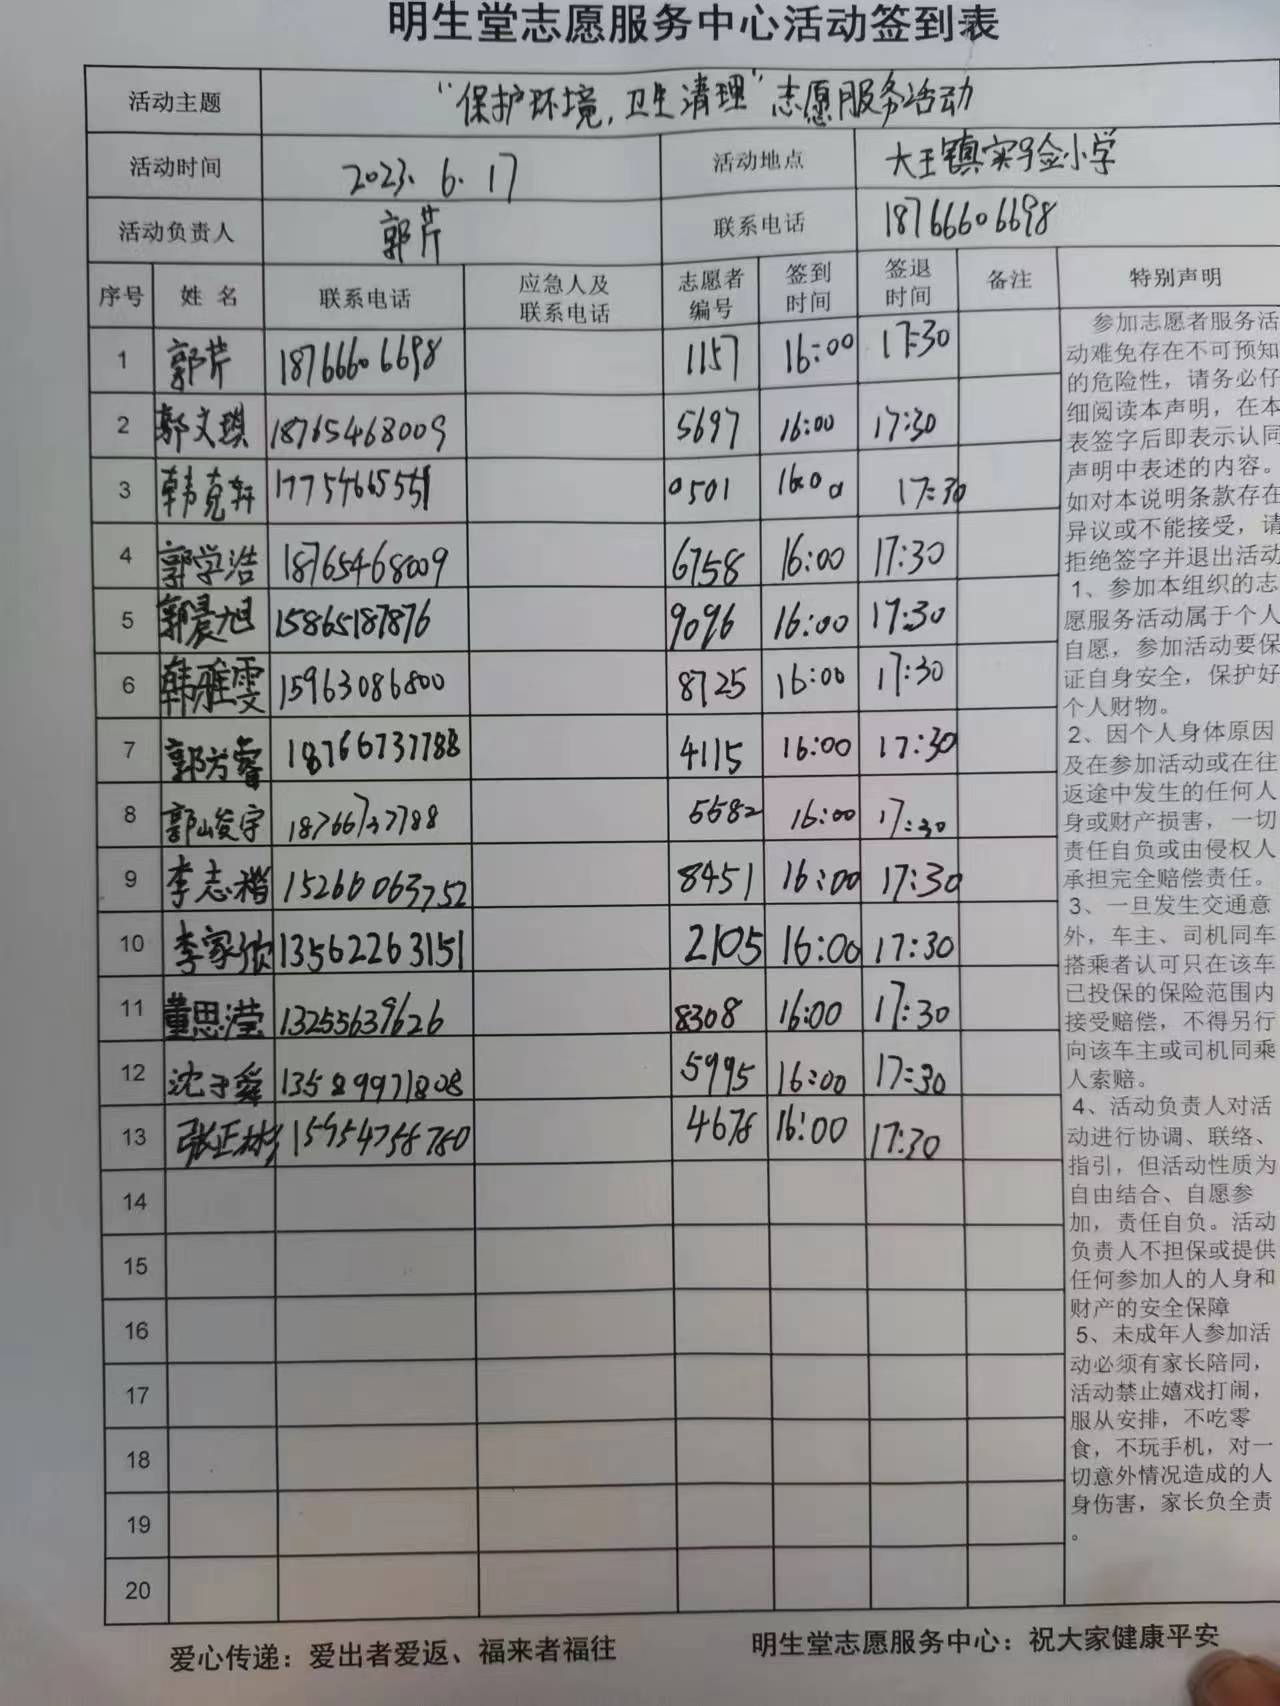 明生堂志愿服务中心活动签到表
活动主题 “保护环境,卫生清理”志愿服务活动
活动时间 2023.6.17 活动地点 大王镇实验小学
活动负责人 郭芹 联系电话 18766606698
序号 姓名 联系电话 应急人及联系电话 志愿者编号 签到时间 签退时间 备注 特别声明
1 郭芹 18766606698 1157 16:00 17:30
2 郭文琪 18765468009 5697 16:00 17:30
3 韩克轩 17754665551 0501 16:00 17:30
4 郭学浩 18765468009 6758 16:00 17:30
5 郭晨旭 15865187876 9096 16:00 17:30
6 韩雅雯 15963086800 8725 16:00 17:30
7 郭芳睿 18766737788 4115 16:00 17:30
8 郭峻宇 18766737788 5582 16:00 17:30
9 李志楷 15266063752 8451 16:00 17:30
10 李家欣 13562263151 2105 16:00 17:30
11 董思滢 13255639626 8308 16:00 17:30
12 沈子舜 13589971808 5995 16:00 17:30
13 张正彬 15954758780 4678 16:00 17:30
14
15
16
17
18
19
20
参加志愿者服务活
动难免存在不可预知
的危险性，请务必仔
细阅读本声明，在本
表签字后即表示认同
声明中表述的内容。
如对本说明条款存在
异议或不能接受，请
拒绝签字并退出活动
1、参加本组织的志
愿服务活动属于个人
自愿，参加活动要保
证自身安全，保护好
个人财物。
2、因个人身体原因
及在参加活动或在往
返途中发生的任何人
身或财产损害，一切
责任自负或由侵权人
承担完全赔偿责任。
3、一旦发生交通意
外，车主、司机同车
搭乘者认可只在该车
已投保的保险范围内
接受赔偿，不得另行
向该车主或司机同乘
人索赔。
4、活动负责人对活
动进行协调、联络、
指引，但活动性质为
自由结合、自愿参
加，责任自负。活动
负责人不担保或提供
任何参加人的人身和
财产的安全保障
5、未成年人参加活
动必须有家长陪同，
活动禁止嬉戏打闹，
服从安排，不吃零
食，不玩手机，对一
切意外情况造成的人
身伤害，家长负全责
。
爱心传递：爱出者爱返、福来者福往 明生堂志愿服务中心：祝大家健康平安